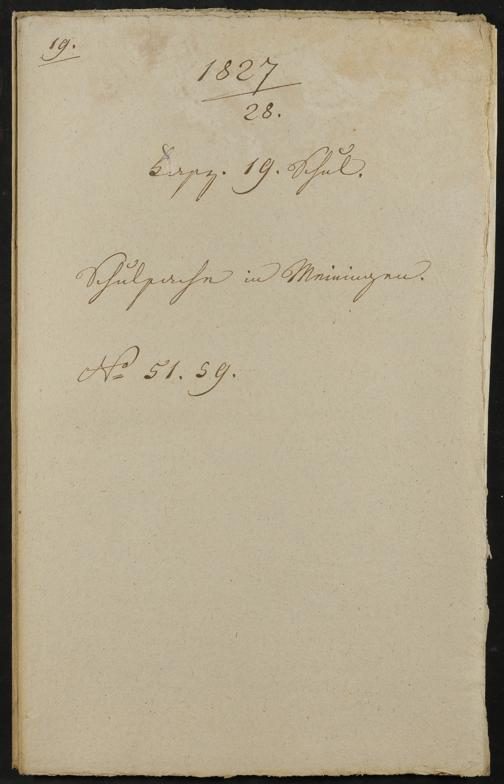 19.
1827
28.
19. Schul.
Schulsache in Meiningen.
No 51. 59.